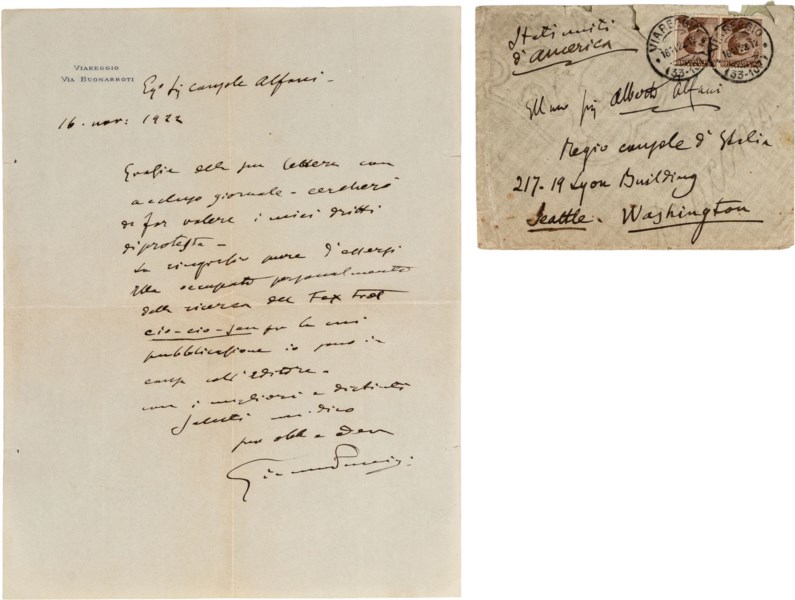 VIAREGGIO
VIA BUONARROTI
Eg° Sig console Alfani -
16. nov: 1922
Grazie della sua lettera con
accluso giornale - cercherò
di far valere i miei diritti
di protesta -
La ringrazio pure d'essersi
Ella occupato personalmente
della ricerca del Fox trot
cio-cio-san per la cui
pubblicazione io sono in
causa coll'editore -
con i migliori e distinti
saluti mi dico
suo obb e Dev
Giacomo Puccini
Stati uniti
d'america
VIAREGGIO
VIAREGGIO
(33-107)
(33-107)
Ell mo sig Alberto Alfani
Regio console d'Italia
217-19 Lyon Building
Seattle - Washington